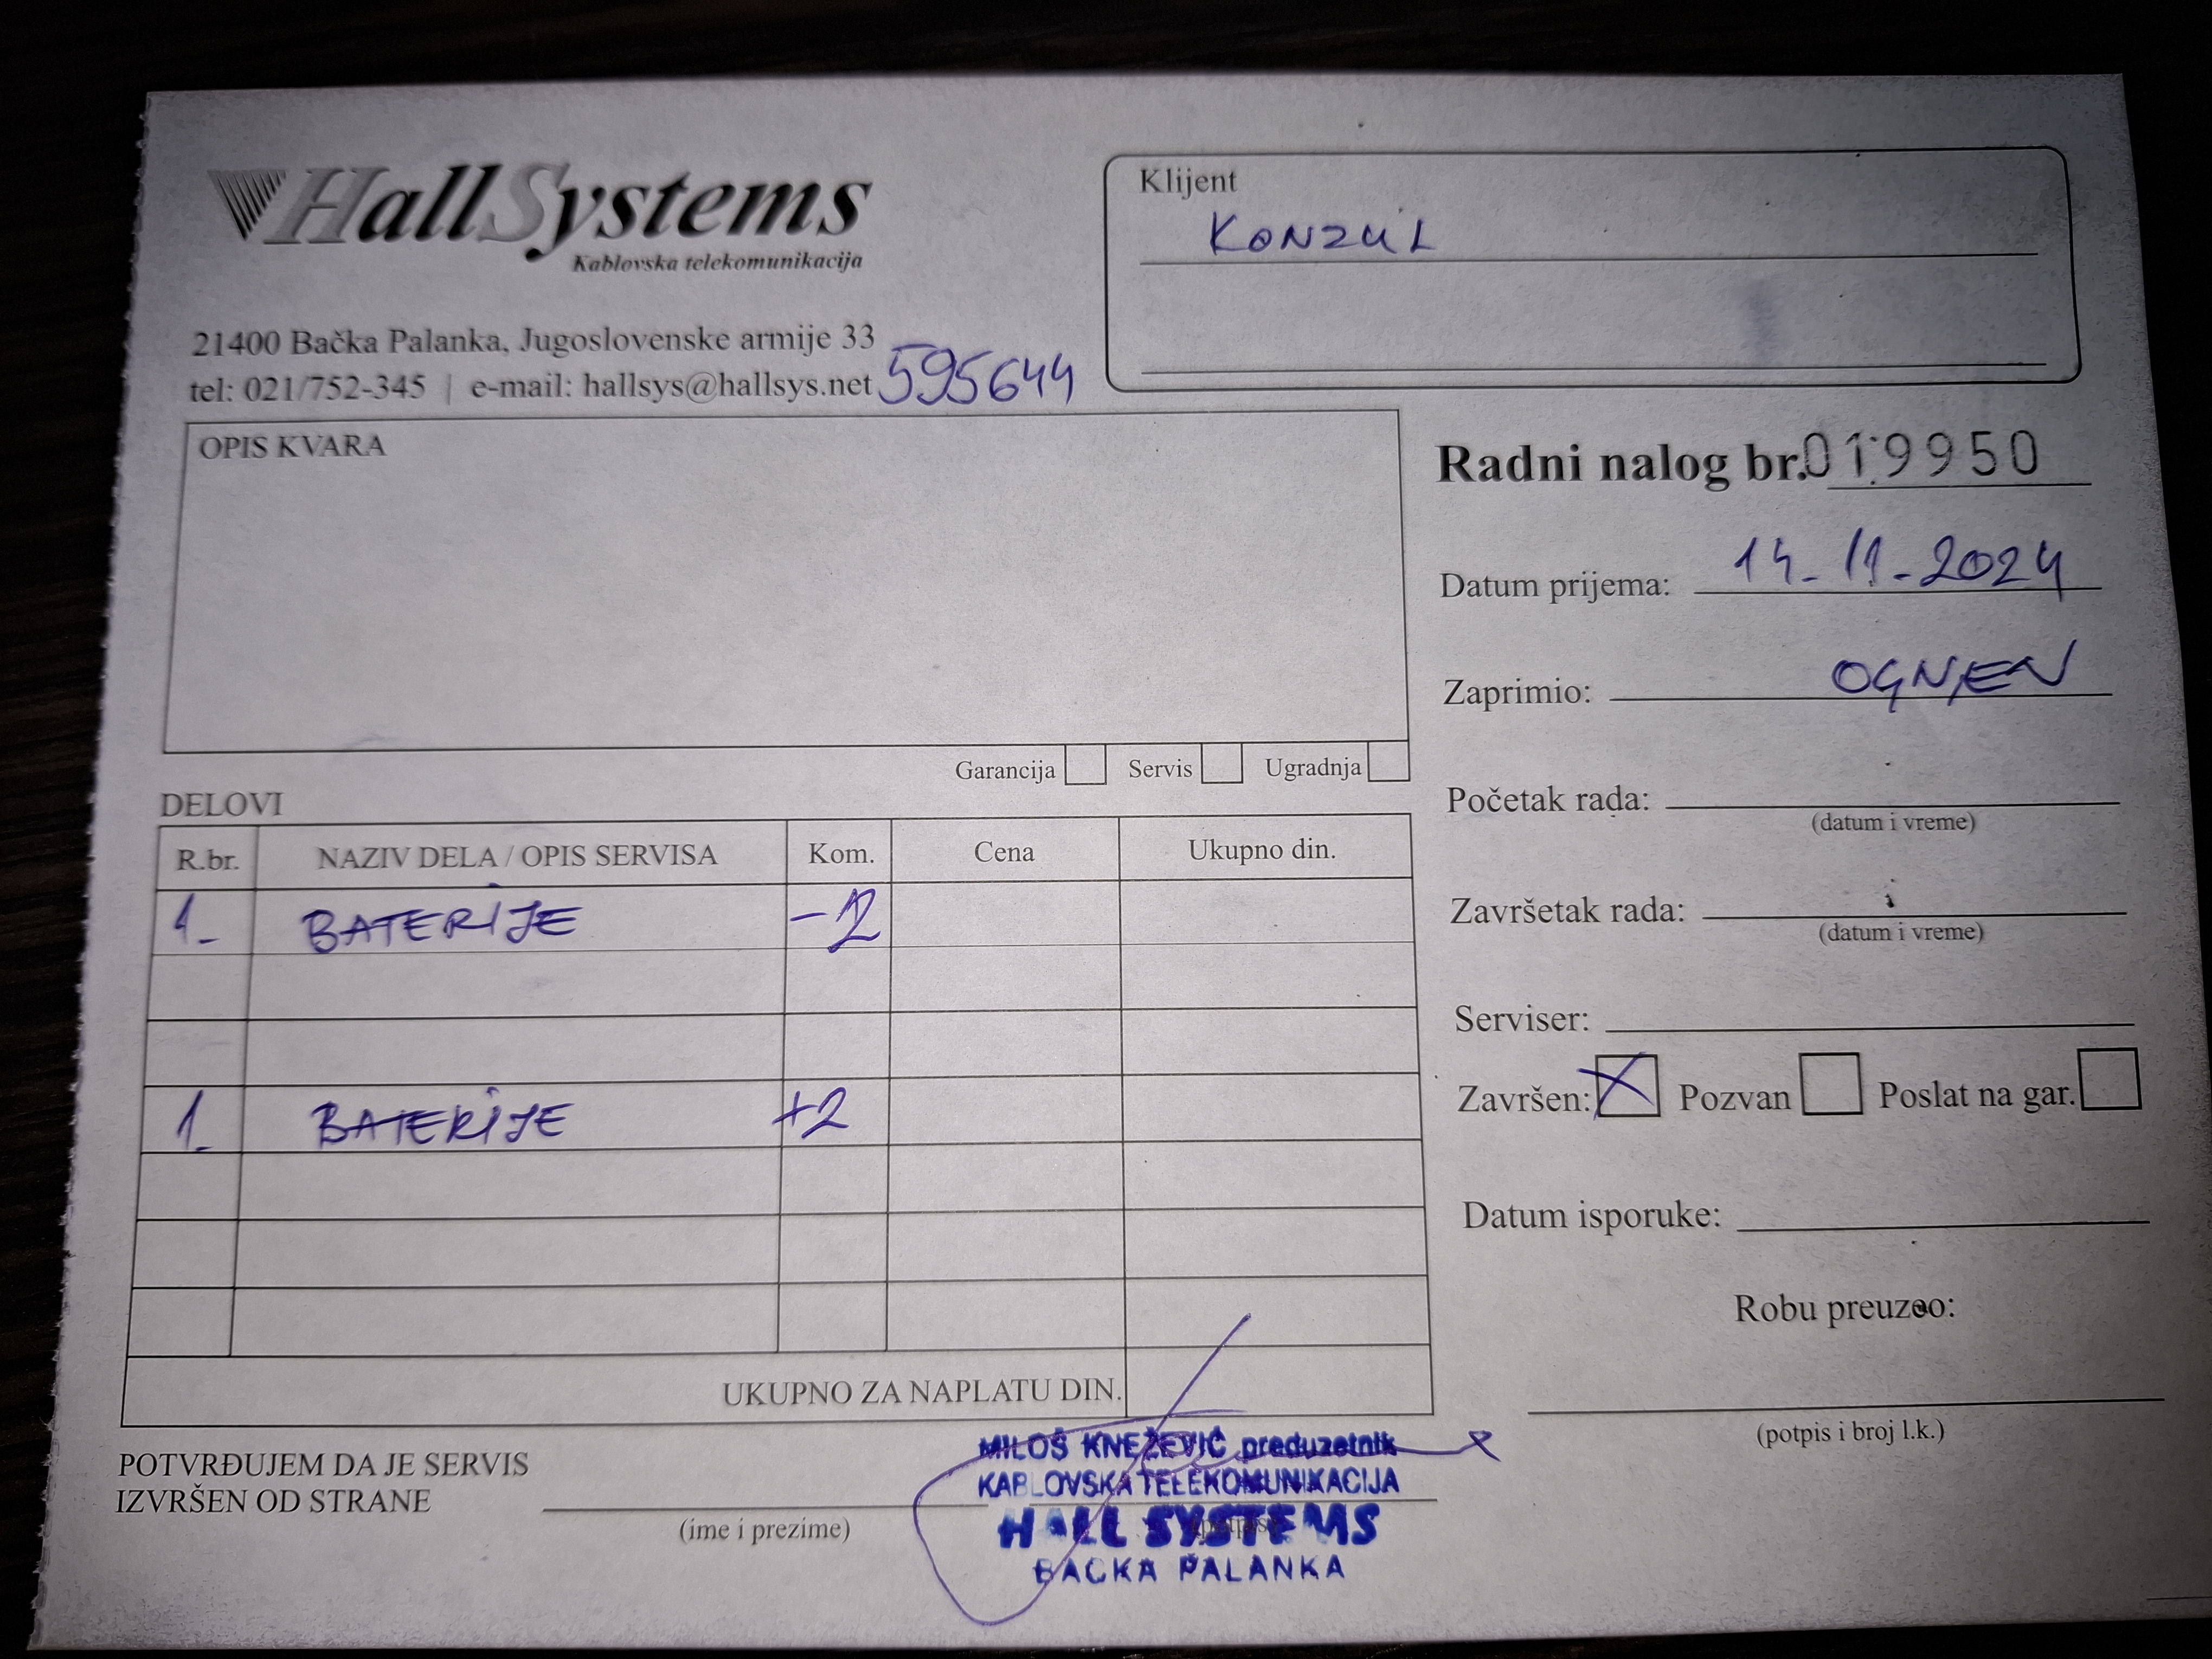 HallSystems
Kablovska telekomunikacija
21400 Bačka Palanka, Jugoslovenske armije 33
tel: 021/752-345 | e-mail: hallsys@hallsys.net 595644
Klijent
KONZUL
OPIS KVARA
Garancija Servis Ugradnja
Radni nalog br. 019950
Datum prijema: 14-11-2024
Zaprimio: OGNJEN
Početak rada:
(datum i vreme)
Završetak rada:
(datum i vreme)
Serviser:
Završen: X Pozvan Poslat na gar.
Datum isporuke:
Robu preuzeo:
(potpis i broj l.k.)
DELOVI
R.br. NAZIV DELA / OPIS SERVISA Kom. Cena Ukupno din.
1. BATERIJE -2
1. BATERIJE +2
UKUPNO ZA NAPLATU DIN.
POTVRĐUJEM DA JE SERVIS
IZVRŠEN OD STRANE
(ime i prezime)
MILOŠ KNEŽEVIĆ preduzetnik
KABLOVSKA TELEKOMUNIKACIJA
HALL SYSTEMS
BAČKA PALANKA